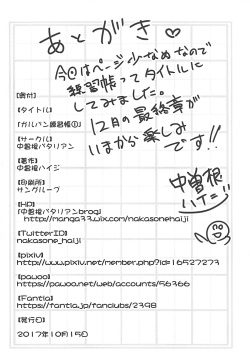 あとがき♡
今回はページ少なめなので
練習帳ってタイトルに
してみました。
12月の最終章が
いまから楽しみ
です!!
中曽根
ハイジ
【奥付】
【タイトル】
「ガルパン練習帳①」
【サークル】
中曽根バタリアン
【著作】
中曽根ハイジ
【印刷所】
サングループ
【HP】
「中曽根バタリアンbrog」
http://manga33.wix.com/nakasoneheiji
【TwitterID】
nakasone_haiji
【pixiv】
http://www.pixiv.net/member.php?id=16527273
【pawoo】
https://pawoo.net/web/accounts/56366
【Fantia】
https://fantia.jp/fanclubs/2398
【発行日】
2017年10月15日